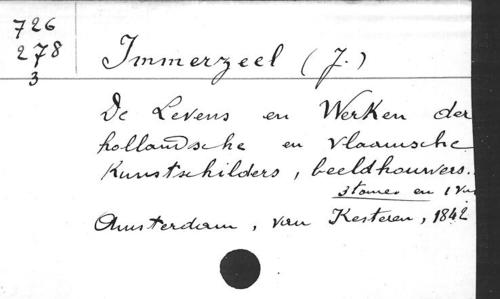 726
278
3
Immerzeel (J.)
De Levens en Werken der
hollandsche en vlaamsche
Kunstschilders, beeldhouwers.
3 tomes en 1 vol
Amsterdam, van Kesteren, 1842